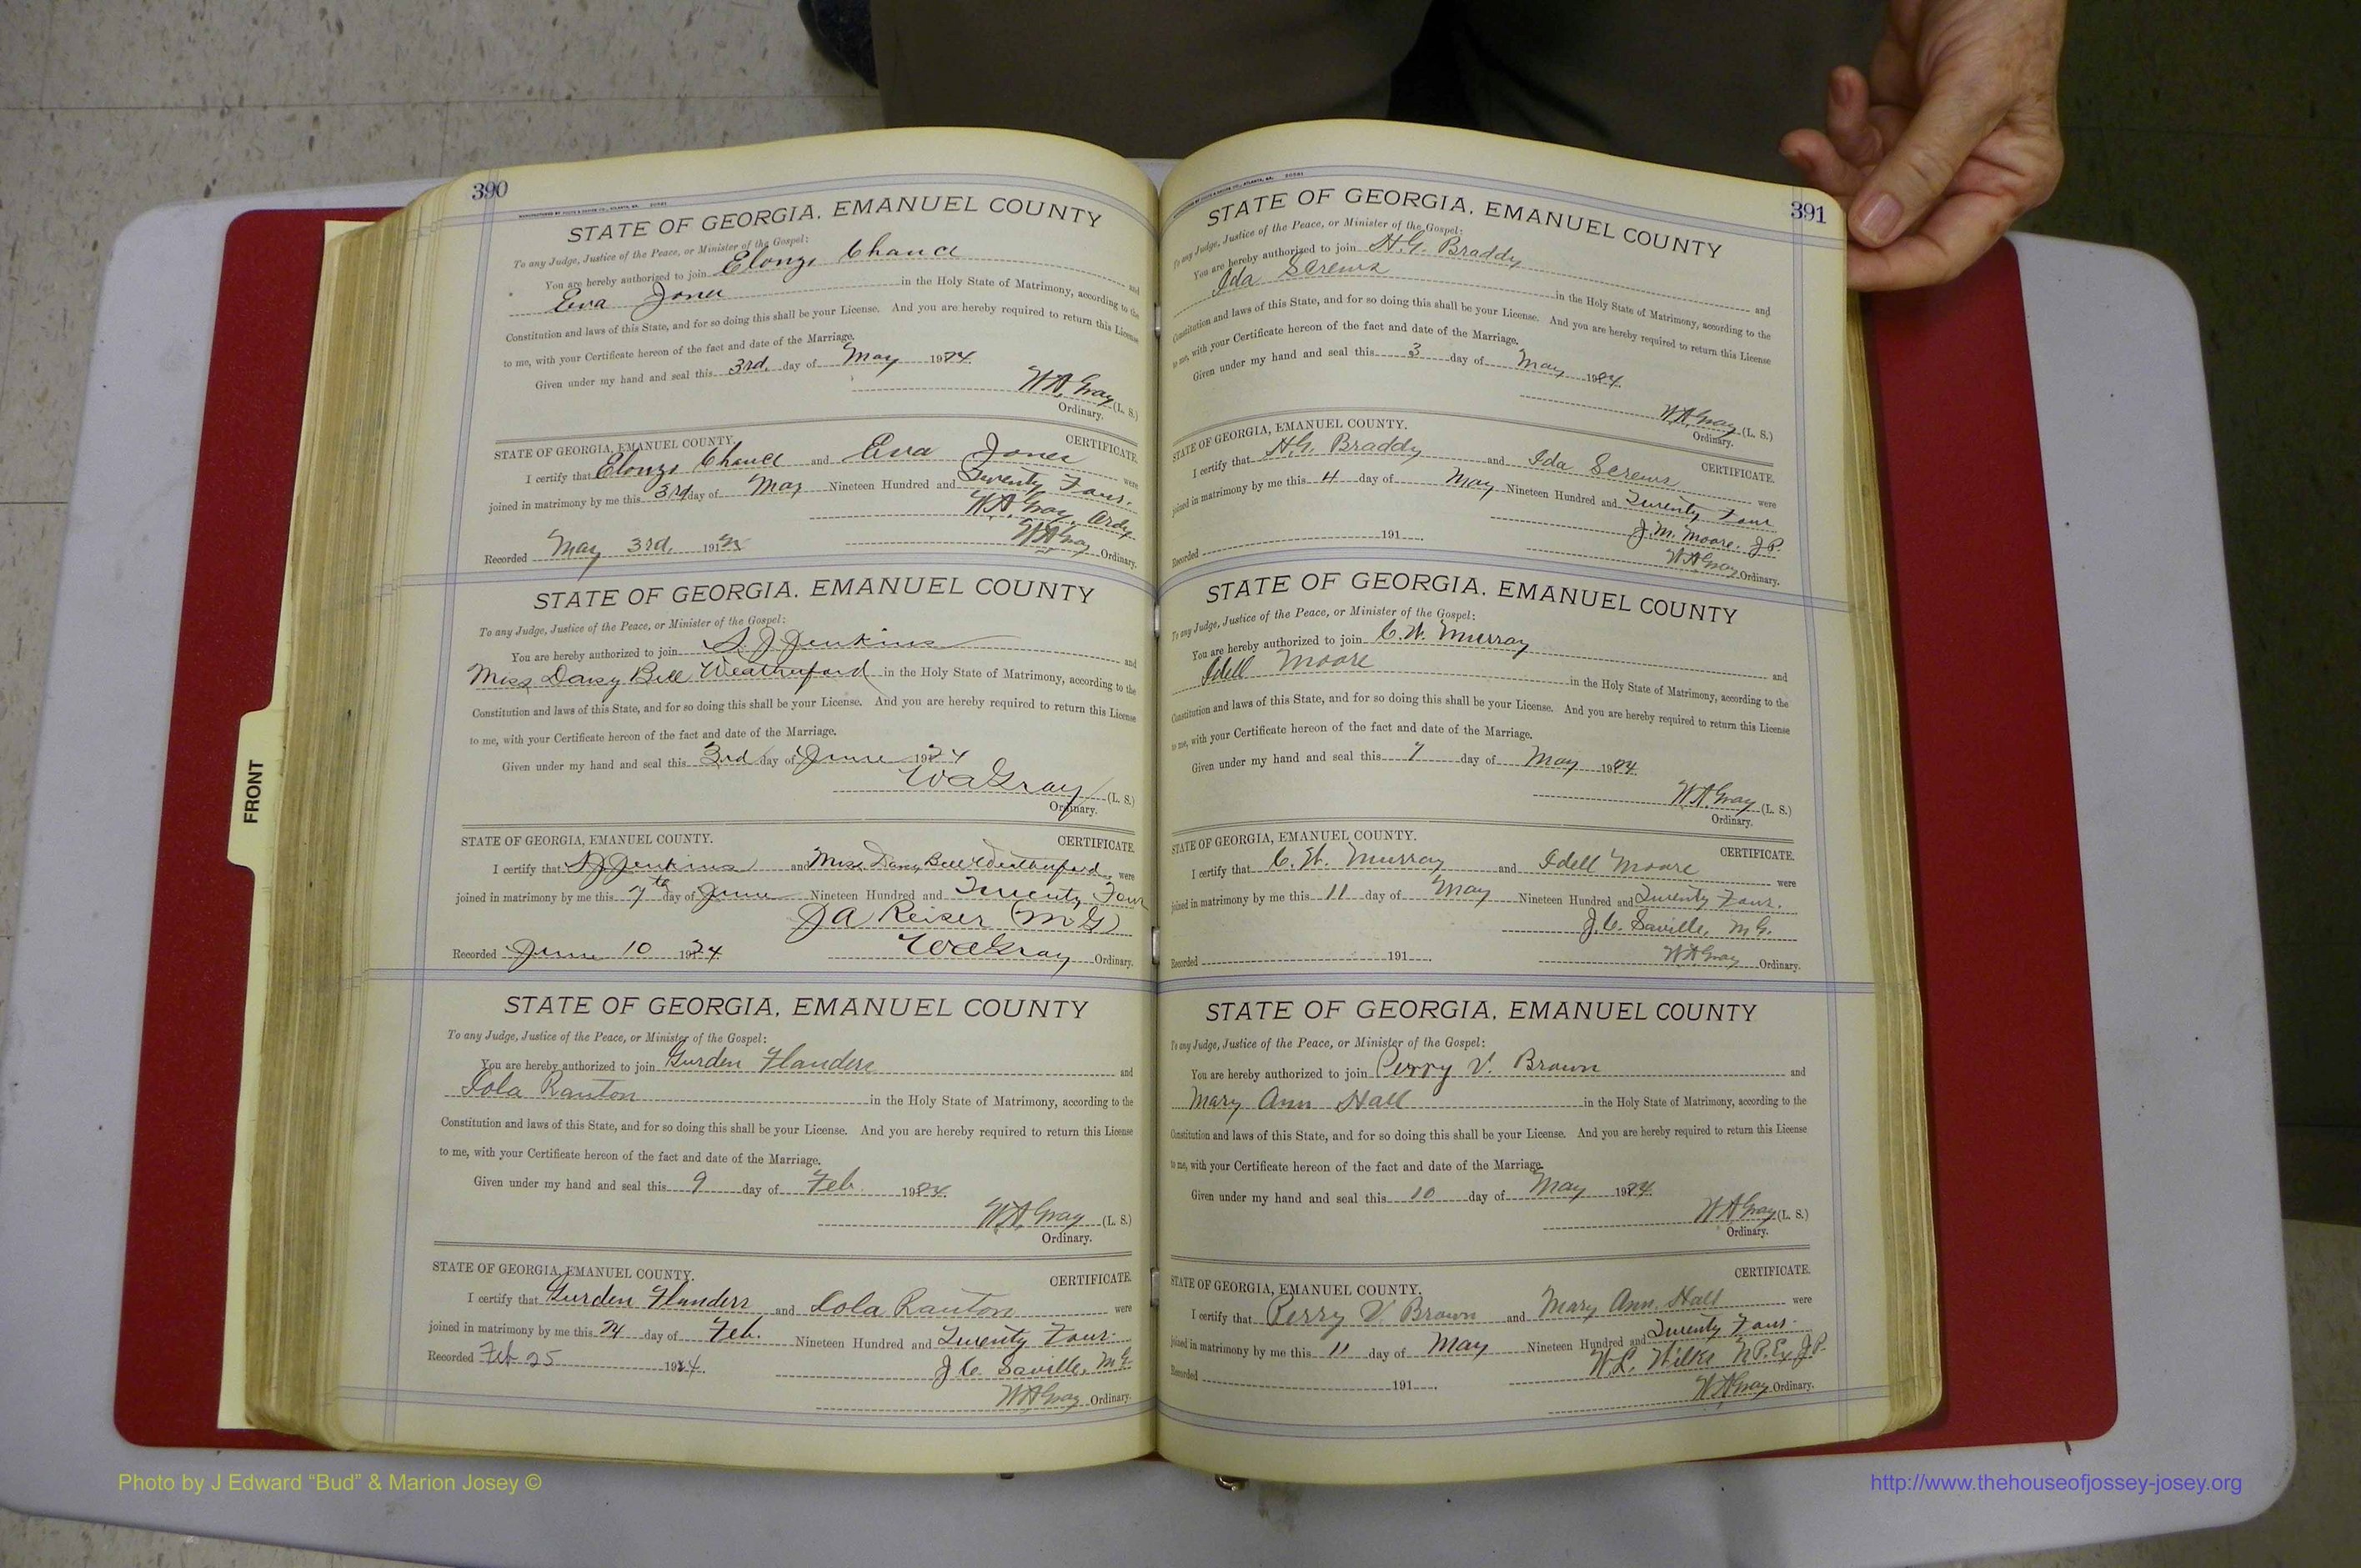 390
STATE OF GEORGIA, EMANUEL COUNTY
To any Judge, Justice of the Peace, or Minister of the Gospel:
You are hereby authorized to join Elonzo Chance and
Eva Jones in the Holy State of Matrimony, according to the
Constitution and laws of this State, and for so doing this shall be your License. And you are hereby required to return this License
to me, with your Certificate hereon of the fact and date of the Marriage.
Given under my hand and seal this 3rd. day of May 1924.
W.A. Gray (L. S.)
Ordinary.
STATE OF GEORGIA, EMANUEL COUNTY. CERTIFICATE.
I certify that Elonzo Chance and Eva Jones were
joined in matrimony by me this 3rd day of May Nineteen Hundred and Twenty Four.
W.A. Gray, Ordy
Recorded May 3rd, 191 W.A. Gray Ordinary.
STATE OF GEORGIA, EMANUEL COUNTY
To any Judge, Justice of the Peace, or Minister of the Gospel:
You are hereby authorized to join S. J Jenkins and
Miss Daisy Bell Weatherford in the Holy State of Matrimony, according to the
Constitution and laws of this State, and for so doing this shall be your License. And you are hereby required to return this License
to me, with your Certificate hereon of the fact and date of the Marriage.
Given under my hand and seal this 3rd day of June 1924
W A Gray (L. S.)
Ordinary.
STATE OF GEORGIA, EMANUEL COUNTY. CERTIFICATE.
I certify that S J Jenkins and Miss Daisy Bell Weatherford were
joined in matrimony by me this 7th day of June Nineteen Hundred and Twenty Four
J A Reiser (M G)
Recorded June 10 1924 W A Gray Ordinary.
STATE OF GEORGIA, EMANUEL COUNTY
To any Judge, Justice of the Peace, or Minister of the Gospel:
You are hereby authorized to join Gurden Flanders and
Lola Ranton in the Holy State of Matrimony, according to the
Constitution and laws of this State, and for so doing this shall be your License. And you are hereby required to return this License
to me, with your Certificate hereon of the fact and date of the Marriage.
Given under my hand and seal this 9 day of Feb. 1924.
W.A. Gray (L. S.)
Ordinary.
STATE OF GEORGIA, EMANUEL COUNTY. CERTIFICATE.
I certify that Gurden Flanders and Lola Ranton were
joined in matrimony by me this 24 day of Feb. Nineteen Hundred and Twenty Four.
J. C. Saville, M G.
Recorded Feb 25 1924. W A Gray Ordinary.
391
STATE OF GEORGIA, EMANUEL COUNTY
To any Judge, Justice of the Peace, or Minister of the Gospel:
You are hereby authorized to join H.G. Braddy and
Ida Screws in the Holy State of Matrimony, according to the
Constitution and laws of this State, and for so doing this shall be your License. And you are hereby required to return this License
to me, with your Certificate hereon of the fact and date of the Marriage.
Given under my hand and seal this 3 day of May 1924.
W.A. Gray (L. S.)
Ordinary.
STATE OF GEORGIA, EMANUEL COUNTY. CERTIFICATE.
I certify that H.G. Braddy and Ida Screws were
joined in matrimony by me this 4 day of May Nineteen Hundred and Twenty Four
J. M. Moore. J P.
Recorded 191 W A Gray Ordinary.
STATE OF GEORGIA, EMANUEL COUNTY
To any Judge, Justice of the Peace, or Minister of the Gospel:
You are hereby authorized to join C. W. Murray and
Idell Moore in the Holy State of Matrimony, according to the
Constitution and laws of this State, and for so doing this shall be your License. And you are hereby required to return this License
to me, with your Certificate hereon of the fact and date of the Marriage.
Given under my hand and seal this 7 day of May 1924.
W A Gray (L. S.)
Ordinary.
STATE OF GEORGIA, EMANUEL COUNTY. CERTIFICATE.
I certify that C. W. Murray and Idell Moore were
joined in matrimony by me this 11 day of May Nineteen Hundred and Twenty Four.
J. C. Saville, M G.
Recorded 191 W A Gray Ordinary.
STATE OF GEORGIA, EMANUEL COUNTY
To any Judge, Justice of the Peace, or Minister of the Gospel:
You are hereby authorized to join Perry V. Brown and
Mary Ann Hall in the Holy State of Matrimony, according to the
Constitution and laws of this State, and for so doing this shall be your License. And you are hereby required to return this License
to me, with your Certificate hereon of the fact and date of the Marriage.
Given under my hand and seal this 10 day of May 1924.
W A Gray (L. S.)
Ordinary.
STATE OF GEORGIA, EMANUEL COUNTY. CERTIFICATE.
I certify that Perry V. Brown and Mary Ann. Hall were
joined in matrimony by me this 11 day of May Nineteen Hundred and Twenty Four.
W. L. Wilks N.P. Ex J P.
Recorded 191 W A Gray Ordinary.
FRONT
Photo by J Edward “Bud” & Marion Josey ©
http://www.thehouseofjossey-josey.org